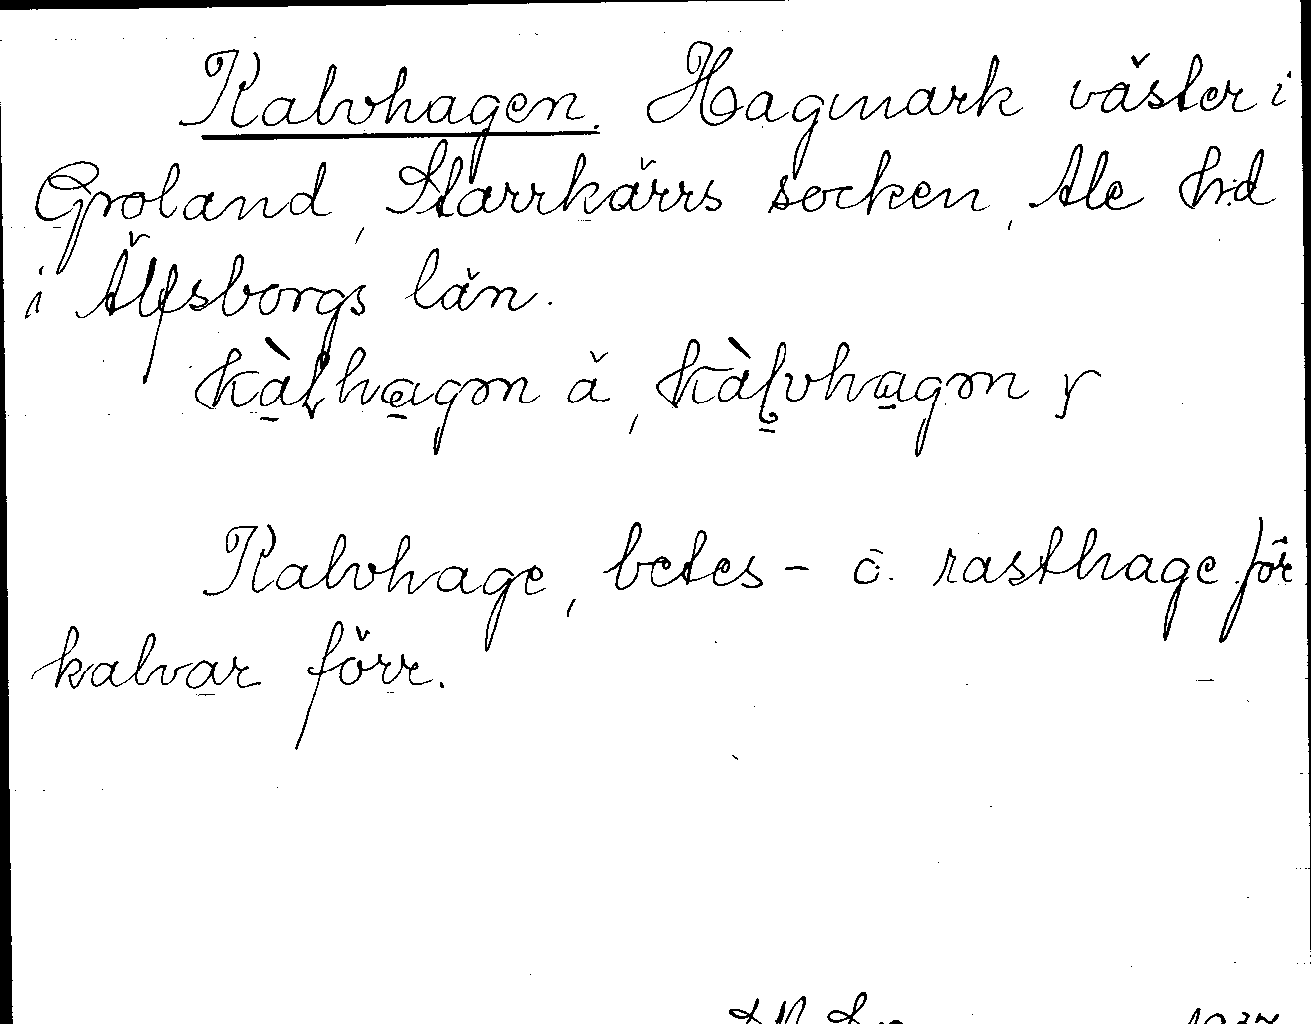 Kalvhagen. Hagmark väster i
Groland, Starrkärrs socken, Ale hd
i Älfsborgs län.
kàlhagən ä, kàlvhagən y
Kalvhage, betes- o. rasthage för
kalvar förr.